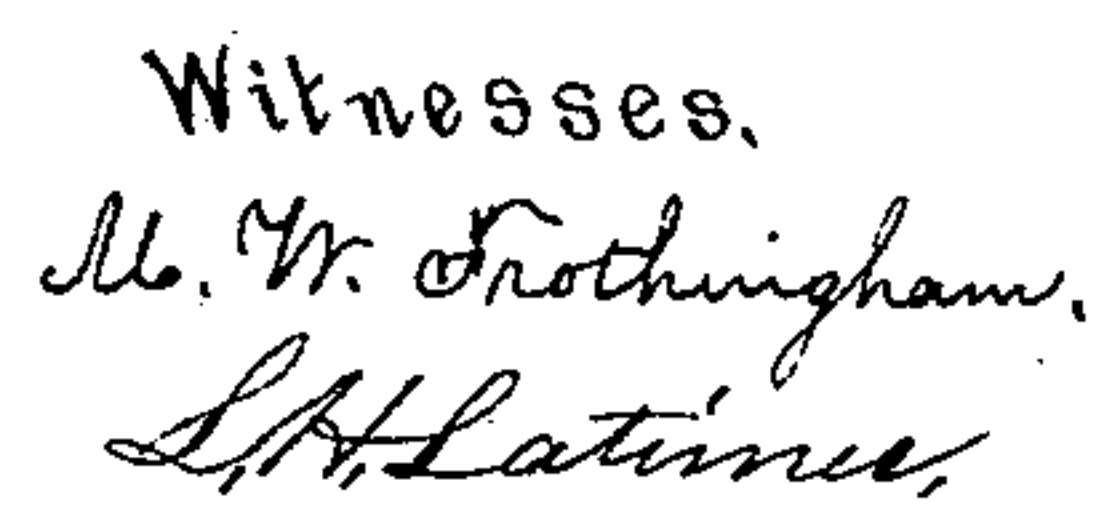 Witnesses.
M. W. Frothingham.
L. H. Latimer,